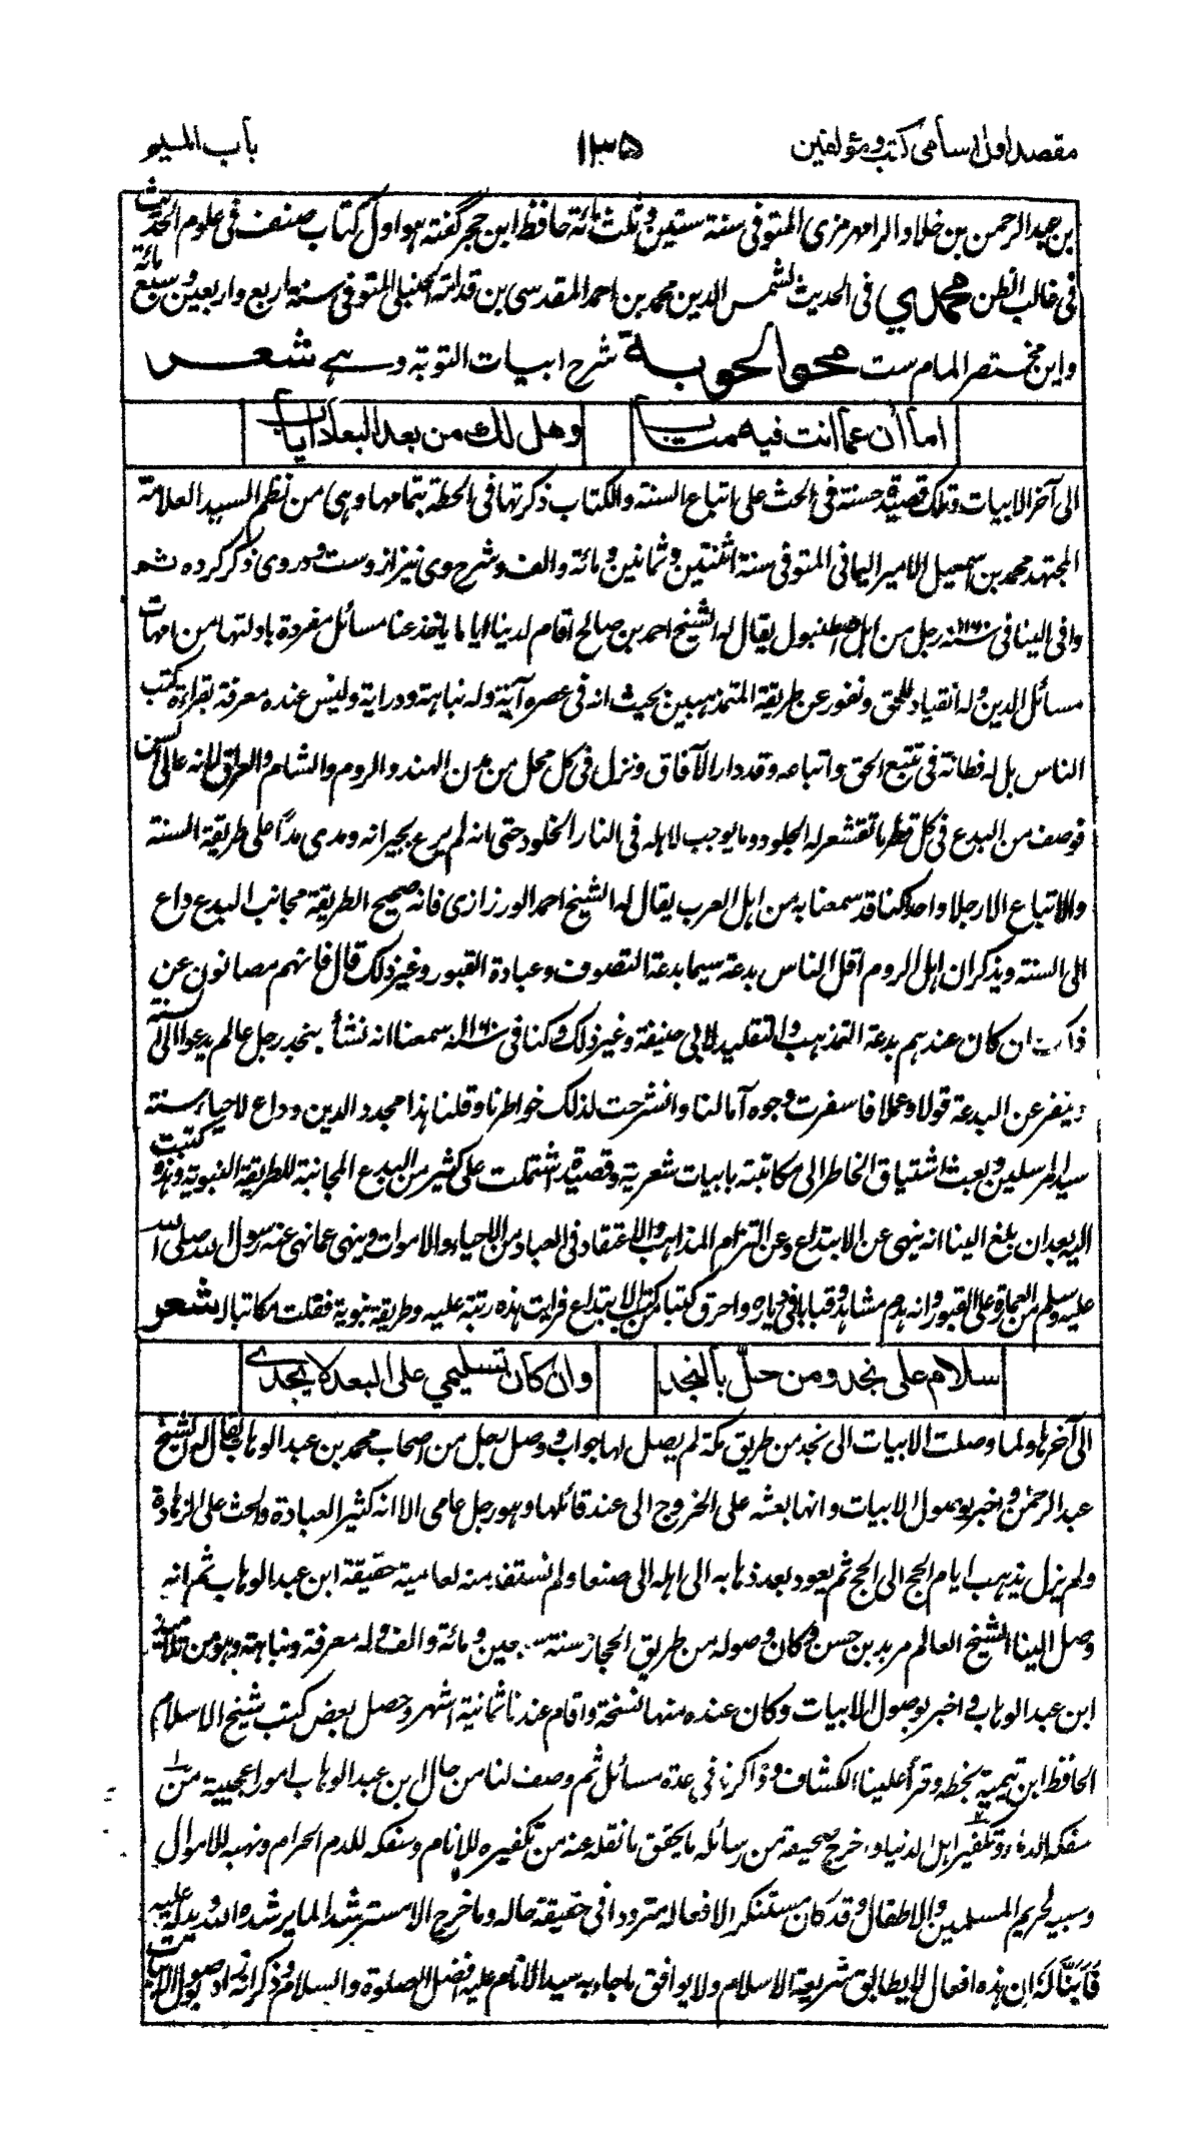 مقصد اول اسامی کتب و مؤلفین
۱۳۵
باب المیم
بن عبد الرحمن بن خلاد الرامهرمزی المتوفی سنة ستین وثلث مائة حافظ ابن حجر گفته هو اول کتاب صنف فی علوم الحدیث
فی غالب الظن محمدی فی الحدیث لشمس الدین محمد بن احمد المقدسی بن قدامة الحنبلی المتوفی سنة اربع واربعین وسبع مائة
واین مختصر المام ست محو الحوبة شرح ابیات التوبة وہے شعر
اما أن عما انت فیه متاب
وهل لك من بعد البعاد ایاب
الی آخر الابیات وتلک قصیدة حسنة فی الحث علی اتباع السنة والکتاب ذکرتها فی الحطة بتمامها وهی من نظم السید العلامة
المجتهد محمد بن اسمعیل الامیر الیمانی المتوفی سنة اثنتین وثمانین ومائة والف وشرح وی نیز ازوست ودروی ذکر کرده ثم
وافی الینا فی سنة ۱۱۶۰ رجل من اهل اصطنبول یقال له الشیخ احمد بن صالح اقام لدینا ایاما یاخذ عنا مسائل مفردة بادلتها من امهات
مسائل الدین وله انقیاد للحق ونفور عن طریقة المتمذهبین بحیث انه فی عصره آیة وله نباهة ودرایة ولیس عنده معرفة بقراءة کتب
الناس بل له فطانة فی تتبع الحق واتباعه وقد دار الآفاق ونزل فی کل محل من مدن الهند والروم والشام والعراق لانه عالی السن
فوصف من البدع فی کل قطر ما تقشعر له الجلود وما یوجب لاهله فی النار الخلود حتی انه لم یرع بجیرانه ومدی مدا علی طریقة السنة
والاتباع الا رجلا واحدا کنا قد سمعنا به من اهل العرب یقال له الشیخ احمد الورزازی فانه صحیح الطریقة مجانب البدع داع
الی السنة ویذکر ان اهل الروم اقل الناس بدعة سیما بدعة التصوف وعبادة القبور وغیر ذلک قال فانهم مصانون عن
ان کان عندهم بدعة التمذهب والتقلید لابی حنیفة وغیر ذلک وکنا فی سنة ۱۱۶۰ سمعنا انه نشأ بنجد رجل عالم یدعو الی السنة
وینفر عن البدعة قولا وعملا فاسفرت وجوه آمالنا وانشرحت لذلک خواطرنا وقلنا هذا مجدد الدین وداع لاحیاء سنة
سید المرسلین وبعث اشتیاق الخاطر الی مکاتبته بابیات شعریة وقصیدة اشتملت علی کثیر من البدع المجانبة للطریقة النبویة وهذه کتبت
الیه بعد ان بلغ الینا انه ینهی عن الابتداع وعن التزام المذاهب والاعتقاد فی العباد من الاحیاء والاموات وینهی عما نهی عنه رسول الله صلی الله
علیه وسلم من العمارة علی القبور وانه هدم مشاهد وقبابا فی دیاره واحرق کتبا من کتب الابتداع فرایت هذه رتبة علیه وطریقة نبویة فقلت مکاتبا له شعر
سلام علی نجد ومن حلّ بالنجد
وان کان تسلیمی علی البعد لا یجدی
الی آخرها ولما وصلت الابیات الی نجد من طریق مکة لم یصل لها جواب ووصل رجل من اصحاب محمد بن عبد الوهاب یقال له الشیخ
عبد الرحمن واخبر بوصول الابیات وانها بعثه علی الخروج الی عند قائلها وهو رجل عامی الا انه کثیر العبادة والحث علی الزهادة
ولم یزل یذهب ایام الحج الی الحج ثم یعود بعد ذهابه الی اهله الی صنعا ولم نستفد منه لعامیته حقیقة ابن عبد الوهاب ثم انه
وصل الینا الشیخ العالم مربد بن حسن وکان وصوله من طریق الحجاز سنة سبعین ومائة والف وله معرفة ونباهة وهو من تلامیذ
ابن عبد الوهاب واخبر بوصول الابیات وکان عنده منها نسخة واقام عندنا ثمانیة اشهر وحصل بعض کتب شیخ الاسلام
الحافظ ابن تیمیة بخطه وقرأ علینا الکشاف وذاکرنا فی عدة مسائل ثم وصف لنا من حال ابن عبد الوهاب امورا عجیبة من
سفکه الدماء وتکفیر اهل الدنیا واخرج صحیفة من رسائله ما یحقق ما نقله عنه من تکفیره للانام وسفکه للدم الحرام ونهبه للاموال
وسبیه لحریم المسلمین والاطفال وقد کان مستنکرا لافعاله مترددا فی حقیقة حاله وما خرج الا مسترشدا لما یرشده الله ویدله علیه
فأبنّا له ان هذه افعال لا یطابق شریعة الاسلام ولا یوافق ما جاء به سید الانام علیه افضل الصلوة والسلام وذکر انه اراد وصول الابیات